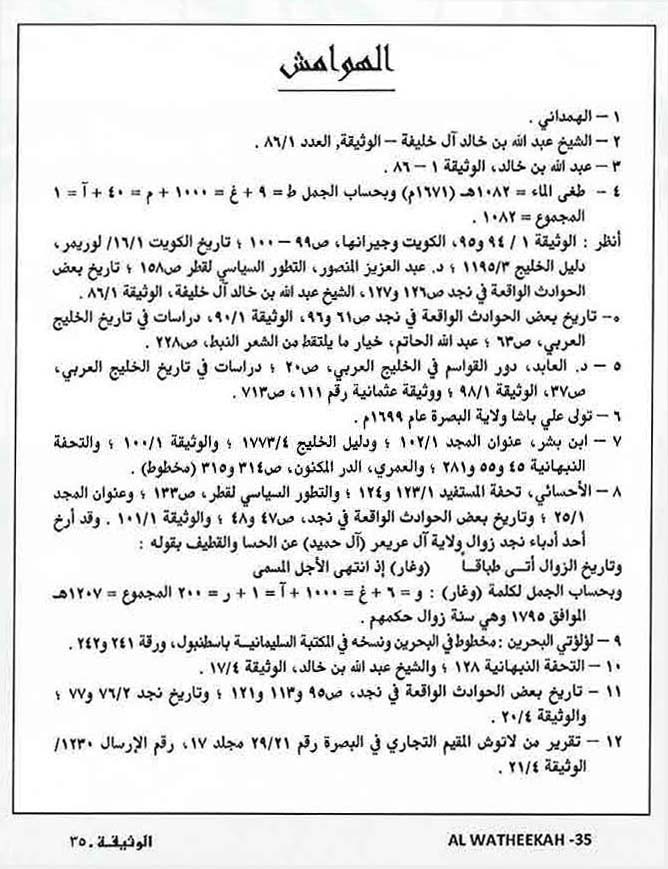 الهوامش
١ – الهمداني .
٢ – الشيخ عبد الله بن خالد آل خليفة – الوثيقة, العدد ٨٦/١ .
٣ – عبد الله بن خالد، الوثيقة ١ – ٨٦ .
٤ – طغى الماء = ١٠٨٢هـ (١٦٧١م) وبحساب الجمل ط = ٩ + غ = ١٠٠٠ + م = ٤٠ + آ = ١
المجموع = ١٠٨٢ .
أنظر : الوثيقة ١ / ٩٤ و٩٥، الكويت وجيرانها، ص٩٩ – ١٠٠ ؛ تاريخ الكويت ١٦/١/ لوريمر،
دليل الخليج ١١٩٥/٣ ؛ د. عبد العزيز المنصور، التطور السياسي لقطر ص١٥٨ ؛ تاريخ بعض
الحوادث الواقعة في نجد ص١٢٦ و١٢٧، الشيخ عبد الله بن خالد آل خليفة، الوثيقة ٨٦/١ .
٥ – تاريخ بعض الحوادث الواقعة في نجد ص٦١ و٩٦، الوثيقة ٩٠/١، دراسات في تاريخ الخليج
العربي، ص٦٣ ؛ عبد الله الحاتم، خيار ما يلتقط من الشعر النبط، ص٢٢٨ .
٥ – د. العابد، دور القواسم في الخليج العربي، ص٢٠ ؛ دراسات في تاريخ الخليج العربي،
ص٣٧، الوثيقة ٩٨/١ ؛ ووثيقة عثمانية رقم ١١١، ص٧١٣ .
٦ – تولى علي باشا ولاية البصرة عام ١٦٩٩م .
٧ – ابن بشر، عنوان المجد ١٠٢/١ ؛ ودليل الخليج ١٧٧٣/٤ ؛ والوثيقة ١٠٠/١ ؛ والتحفة
النبهانية ٤٥ و٥٥ و٢٨١ ؛ والعمري، الدر المكنون، ص٣١٤ و٣١٥ (مخطوط) .
٨ – الأحسائي، تحفة المستفيد ١٢٣/١ و١٢٤ ؛ والتطور السياسي لقطر، ص١٣٣ ؛ وعنوان المجد
٢٥/١ ؛ وتاريخ بعض الحوادث الواقعة في نجد، ص٤٧ و٤٨ ؛ والوثيقة ١٠١/١ . وقد أرخ
أحد أدباء نجد زوال ولاية آل عريعر (آل حميد) عن الحسا والقطيف بقوله :
وتاريخ الزوال أتى طباقاً (وغار) إذ انتهى الأجل المسمى
وبحساب الجمل لكلمة (وغار) : و = ٦ + غ = ١٠٠٠ + آ = ١ + ر = ٢٠٠ المجموع = ١٢٠٧هـ
الموافق ١٧٩٥ وهي سنة زوال حكمهم .
٩ – لؤلؤتي البحرين : مخطوط في البحرين ونسخه في المكتبة السليمانية باسطنبول، ورقة ٢٤١ و٢٤٢ .
١٠ – التحفة النبهانية ١٢٨ ؛ والشيخ عبد الله بن خالد، الوثيقة ١٧/٤ .
١١ – تاريخ بعض الحوادث الواقعة في نجد، ص٩٥ و١١٣ و١٢١ ؛ وتاريخ نجد ٧٦/٢ و٧٧ ؛
والوثيقة ٢٠/٤ .
١٢ – تقرير من لاتوش المقيم التجاري في البصرة رقم ٢٩/٢١ مجلد ١٧، رقم الإرسال ١٢٣٠/
الوثيقة ٢١/٤ .
الوثيقة . ٣٥
AL WATHEEKAH -35